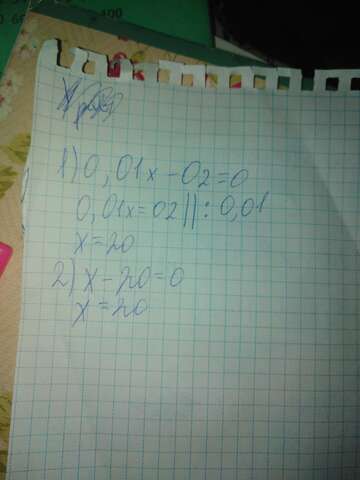 1) 0,01x - 02 = 0
0,01x = 02 || : 0,01
x = 20
2) x - 20 = 0
x = 20